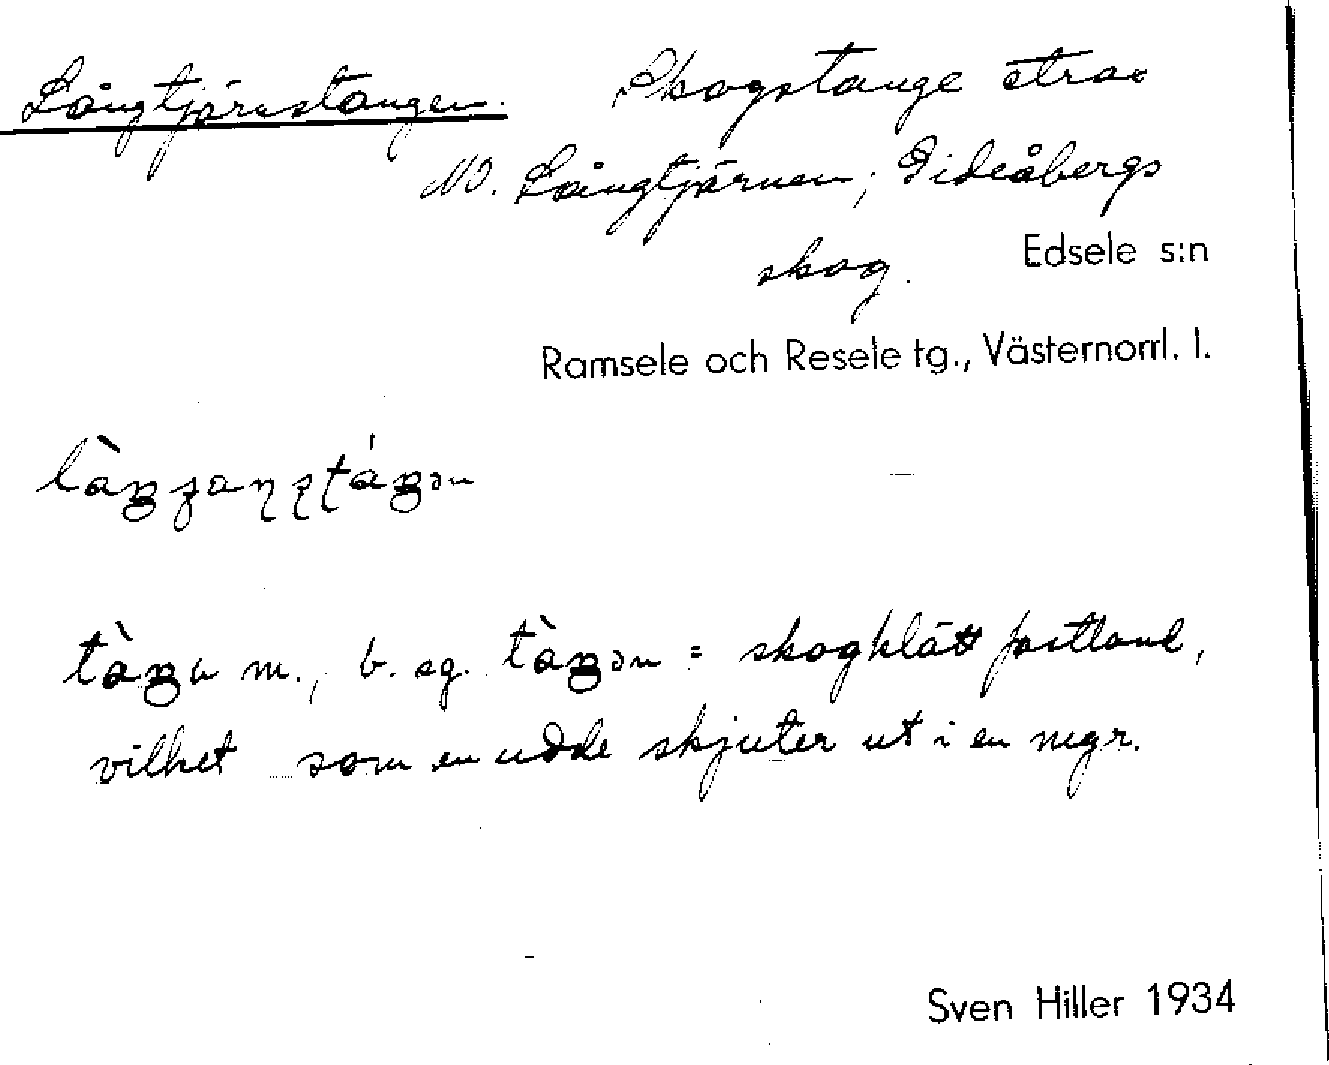 Långtjärnstangen. Skogstange strax
NO. Långtjärnen; Gideåbergs
skog. Edsele s:n
Ramsele och Resele tg., Västernorrl. l.
m., b. sg. = skogklätt fastland,
vilket som en udde skjuter ut i en myr.
Sven Hiller 1934